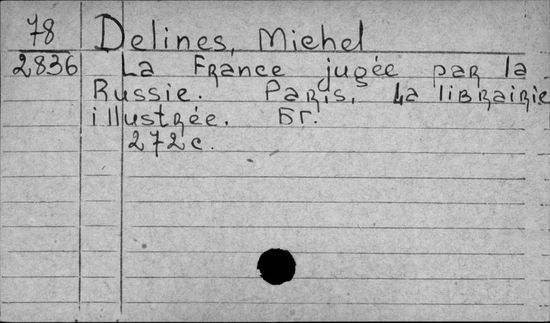 78 Delines, Michel
2836 La France jugée par la
Russie. Paris, La librairie
illustrée. Бг.
272 с.